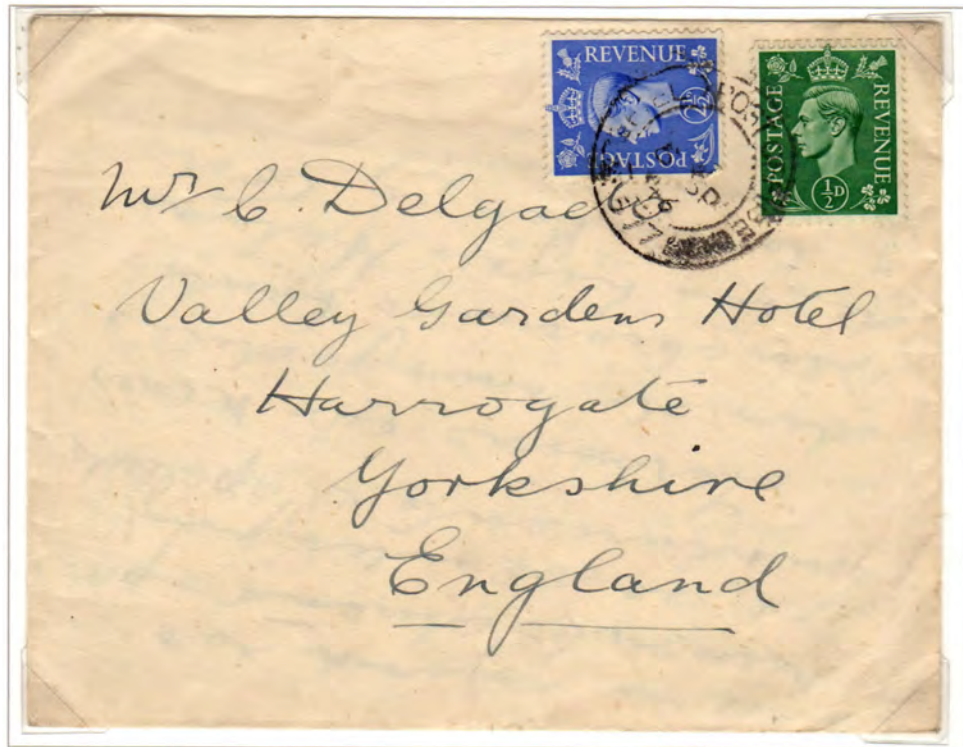 REVENUE
POSTAGE
2½D
POSTAGE
REVENUE
½D
Mr C. Delgad
Valley Gardens Hotel
Harrogate
Yorkshire
England